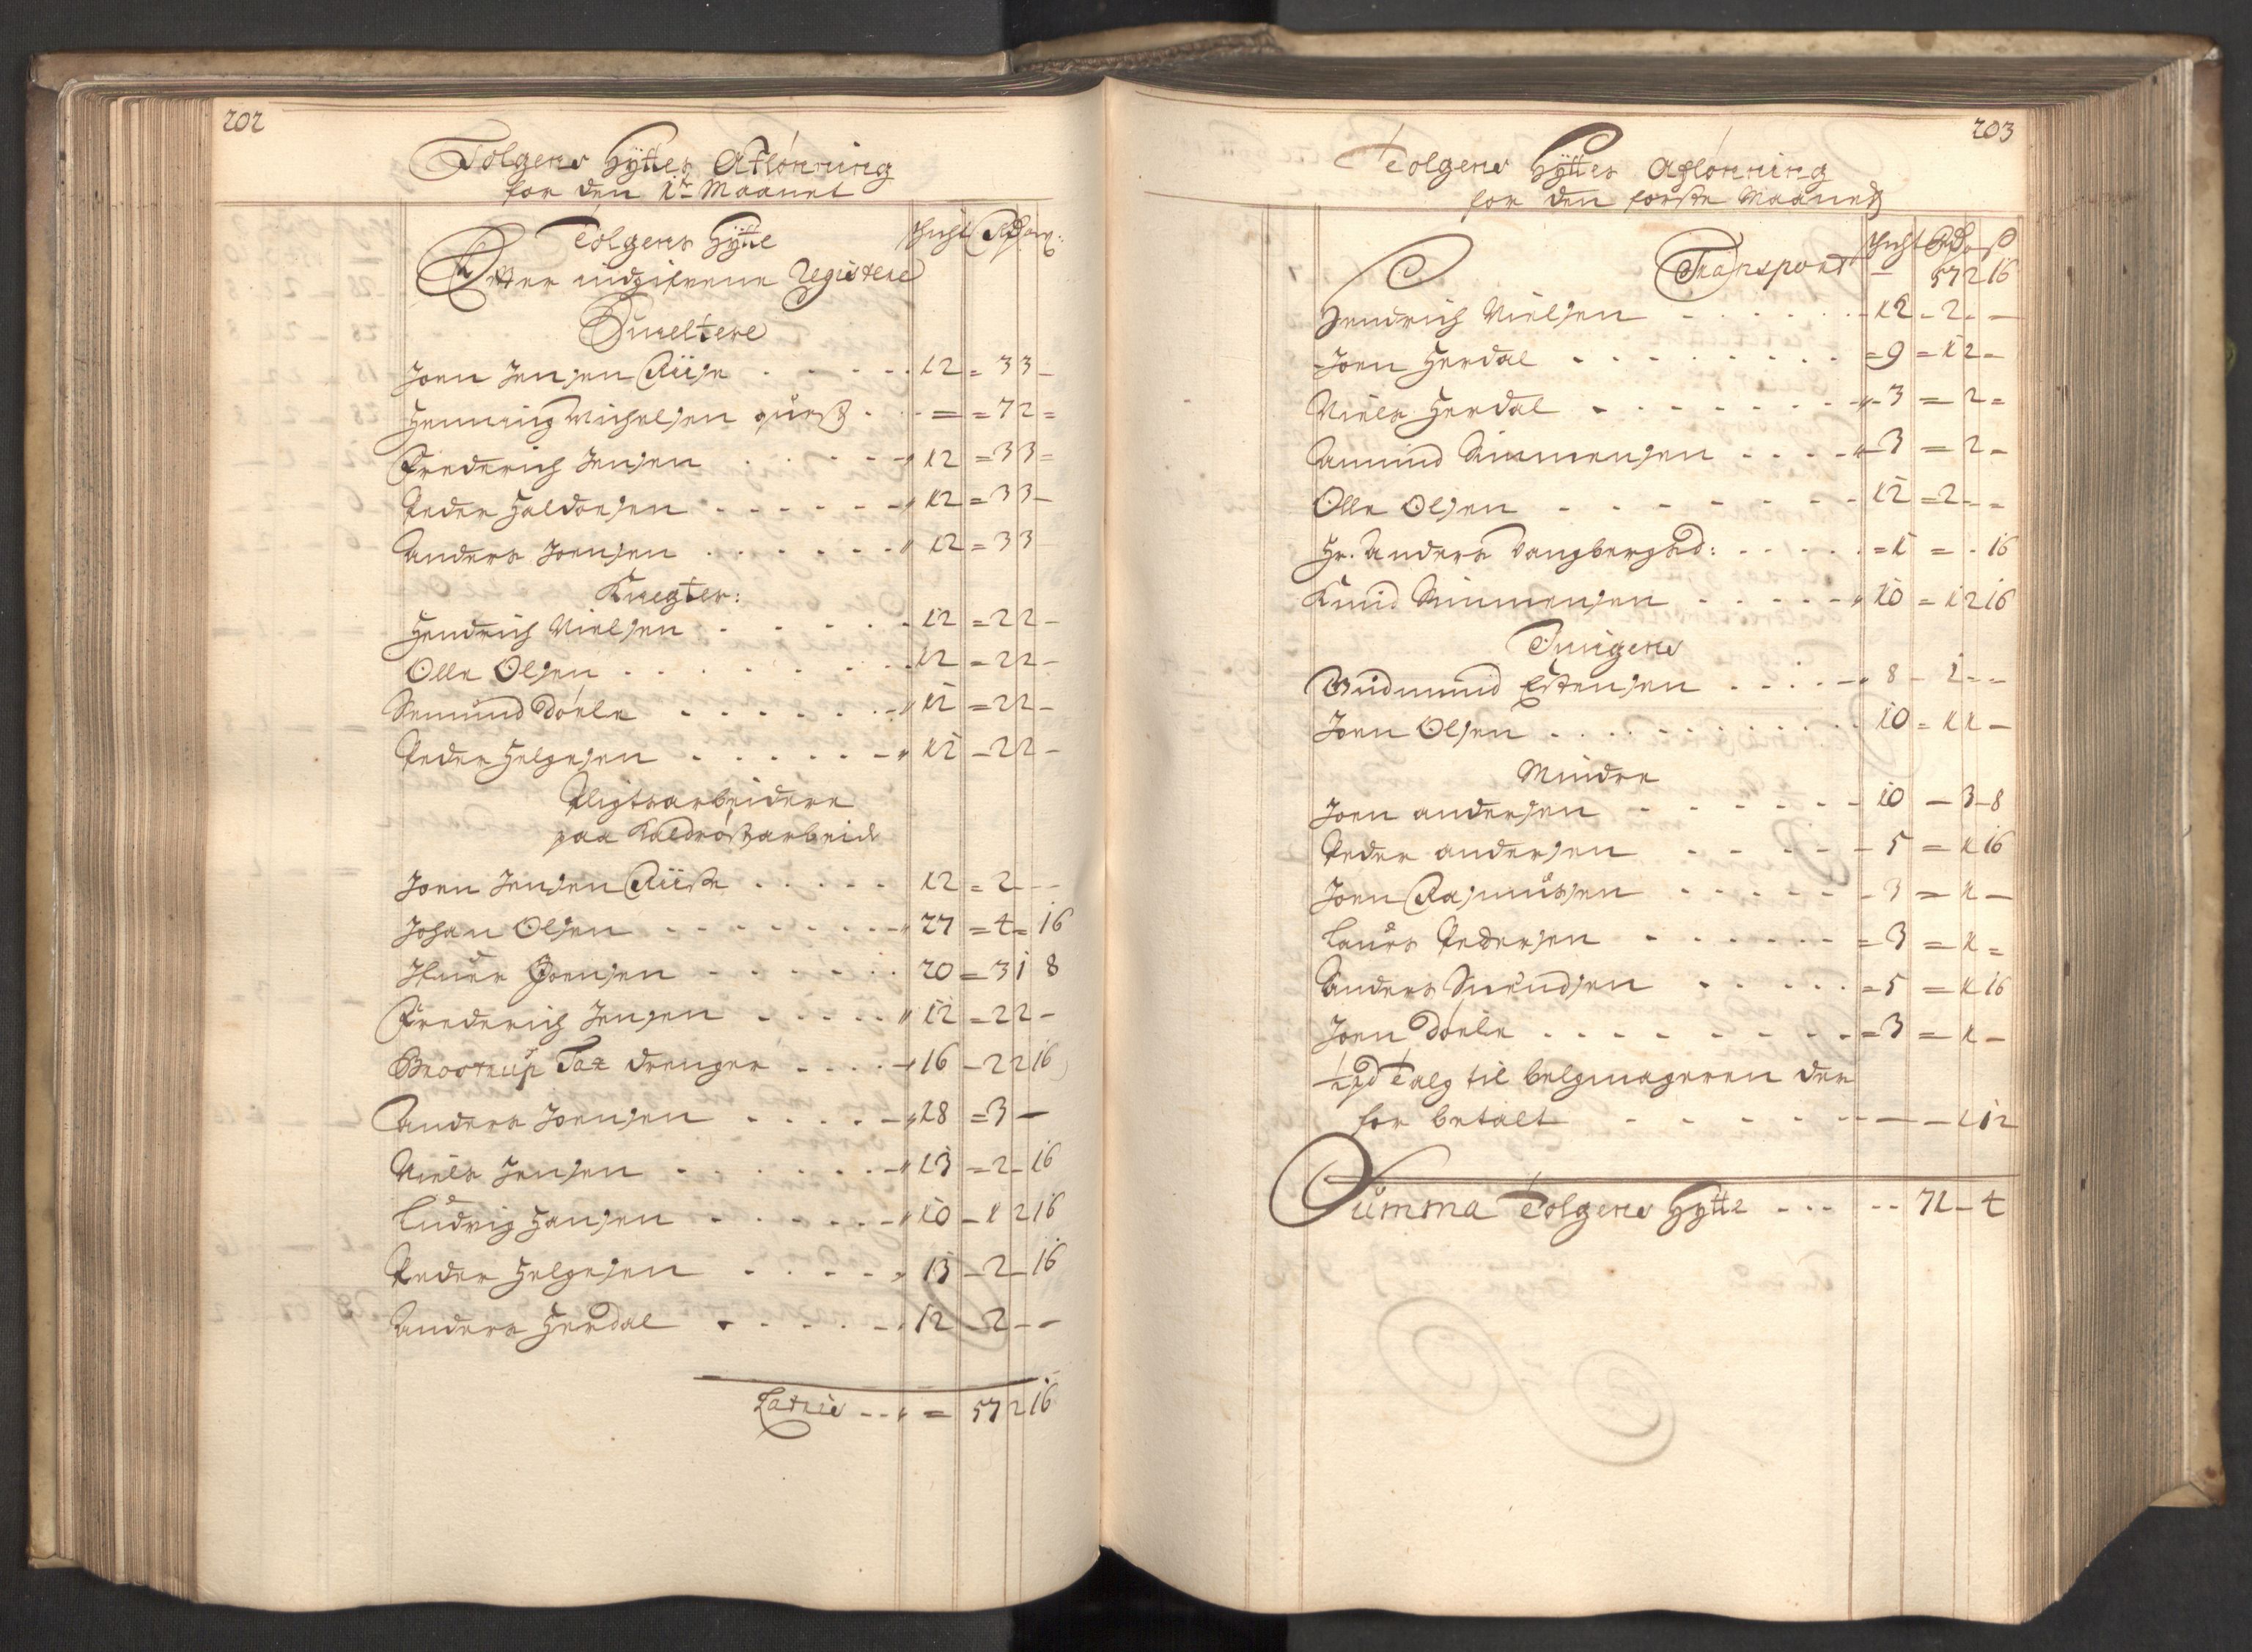 202
Tolgens Hÿttes Aflönning
for den 1te Maanet
Tolgens Hÿtte
Schicht Rd ort
Efter indgifvene Registere
Smeltere
Joen Jensen Riise . . . . . 12 = 3 3 –
Henning Michelsen . . = = 7 2 =
Frederich Jensen . . . . . 12 = 3 3 =
Peder Haldorsen . . . . . . 12 = 3 3 –
Anders Joensen . . . . . . . 12 = 3 3
Knegter:
Hendrich Nielsen . . . . . 12 = 2 2 –
Olle Olsen . . . . . . . . 12 – 2 2 –
Semund Döele . . . . . . 12 = 2 2 –
Peder Helgesen . . . . . . 12 – 2 2 –
Pligtsarbeidere
paa Kaldröstarbeid
Joen Jensen Riise . . . . . 12 = 2 – –
Johan Olsen . . . . . . . . 27 = 4 = 16
Ifuer Joensen . . . . . . 20 = 3 1 8
Frederich Jensen . . . . . 12 – 2 2 –
Brostrup drenger . . . . 16 – 2 2 16
Anders Joensen . . . . . 18 = 3 –
Niels Jensen . . . . . . . 13 = 2 – 16
Ludvig Hansen . . . . . . 10 – 1 2 16
Peder Helgesen . . . . . 13 – 2 – 16
Anders Herdal . . . . . . 12 – 2 – –
Latris – – = 57 2 16
203
Tolgens Hÿttes Aflönning
for den förste Maanet
Schicht Rd ort ß
Transport – 57 2 16
Hendrich Nielsen . . . . . . 12 – 2 – –
Joen Herdal . . . . . . . . = 9 = 1 2 –
Niels Herdal . . . . . . . . 3 = 2 =
Amund Simmensen . . . . 3 = 2 –
Olle Olsen . . . . . . . 12 = 2 – =
Hr. Anders Vangbergs d: . . . . . = 1 = . 16
Knud Simmensen . . . . . 10 = 1 2 16
Tuigere
Gudmund Estensen . . . . 8 – 1 – –
Joen Olsen . . . . . . . . . . 10 = 1 1 –
Mindre
Joen Andersen . . . . . . – 10 – 3 – 8
Peder Andersen . . . . – 5 = 1 16
Joen Rasmussen . . . . . . – 3 = 1 –
Laurs Pedersen . . . . . . = 3 = 1 =
Anders Suendsen . . . . . = 5 = 1 16
Joen Döele . . . . . . . . = 3 = 1 –
Talg til belgmageren der
for betalt – – – – – – – – 1 12
Summa Tolgens Hÿtte - - - - - 71 – 4